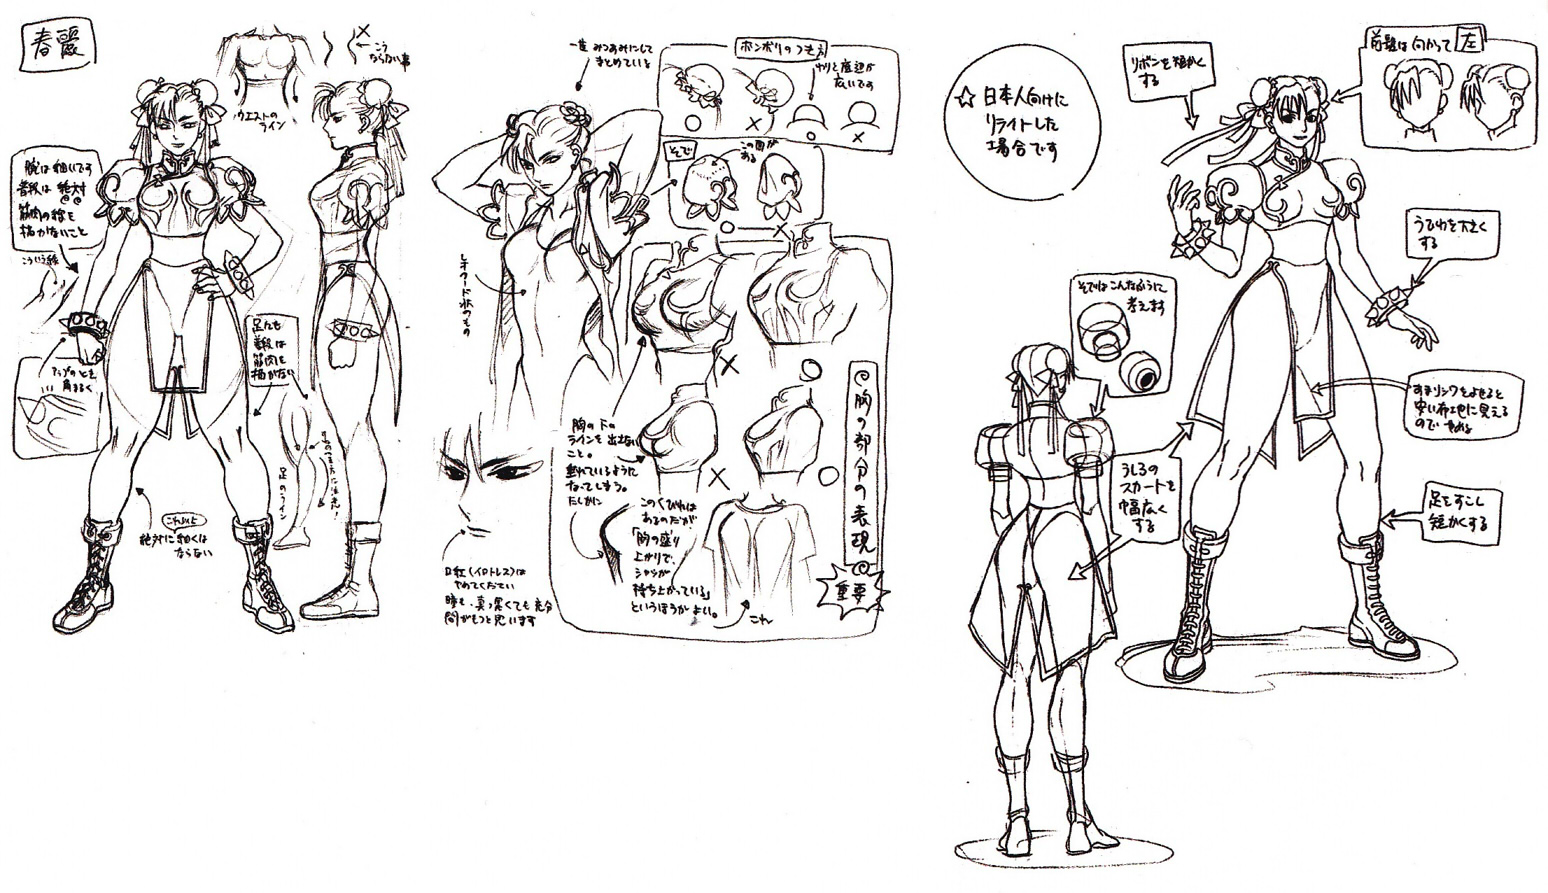 春麗
ウエストの
ライン
こう
ならない事
腕は細いです
普段は絶対
筋肉の線を
描かないこと
こういう線
アップのとき
角まるく
足にも
普段は
筋肉を
描かない
足のライン
これ以上
絶対に細くは
ならない
一度みつあみにして
まとめている
レオタード状のもの
口紅(イロトレス)は
やめてください
ボンボリのつき方
わりと底辺が
広いです
そで
この面が
ある
胸の下の
ラインを出さない
こと。
垂れているように
なってしまう。
このくびれは
あるのだが
「胸の盛り
上がりで、
シャツが
持ち上がっている」
というほうがよい。
これ
◎胸の部分の表現◎
重要
☆日本人向けに
リライトした
場合です
リボンを短かく
する
前髪は向かって左
うでわを大きく
する
そではこんなふうに
考えます
すまリングをよせると
安い布地に見える
のでやめる
うしろの
スカートを
幅広く
する
足をすこし
短かくする